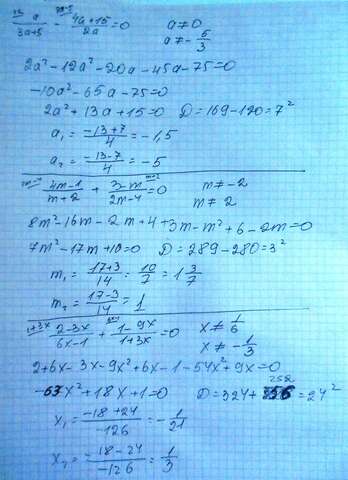 a/(3a+5) - (4a+15)/2a = 0   a≠0
a≠-5/3
2a²-12a²-20a-45a-75=0
-10a²-65a-75=0
2a²+13a+15=0   D=169-120=7²
a₁ = (-13+7)/4 = -1,5
a₂ = (-13-7)/4 = -5
(4m-1)/(m+2) + (3-m)/(2m-4) = 0   m≠-2
m≠2
8m²-16m-2m+4+3m-m²+6-2m=0
7m²-17m+10=0   D=289-280=3²
m₁ = (17+3)/14 = 10/7 = 1 3/7
m₂ = (17-3)/14 = 1
1+3x (2-3x)/(6x-1) + (1-9x)/(1+3x) = 0   x≠1/6
x≠-1/3
2+6x-3x-9x²+6x-1-54x²+9x=0
-63x²+18x+1=0   D=324+252=24²
x₁ = (-18+24)/-126 = -1/21
x₂ = (-18-24)/-126 = 1/3